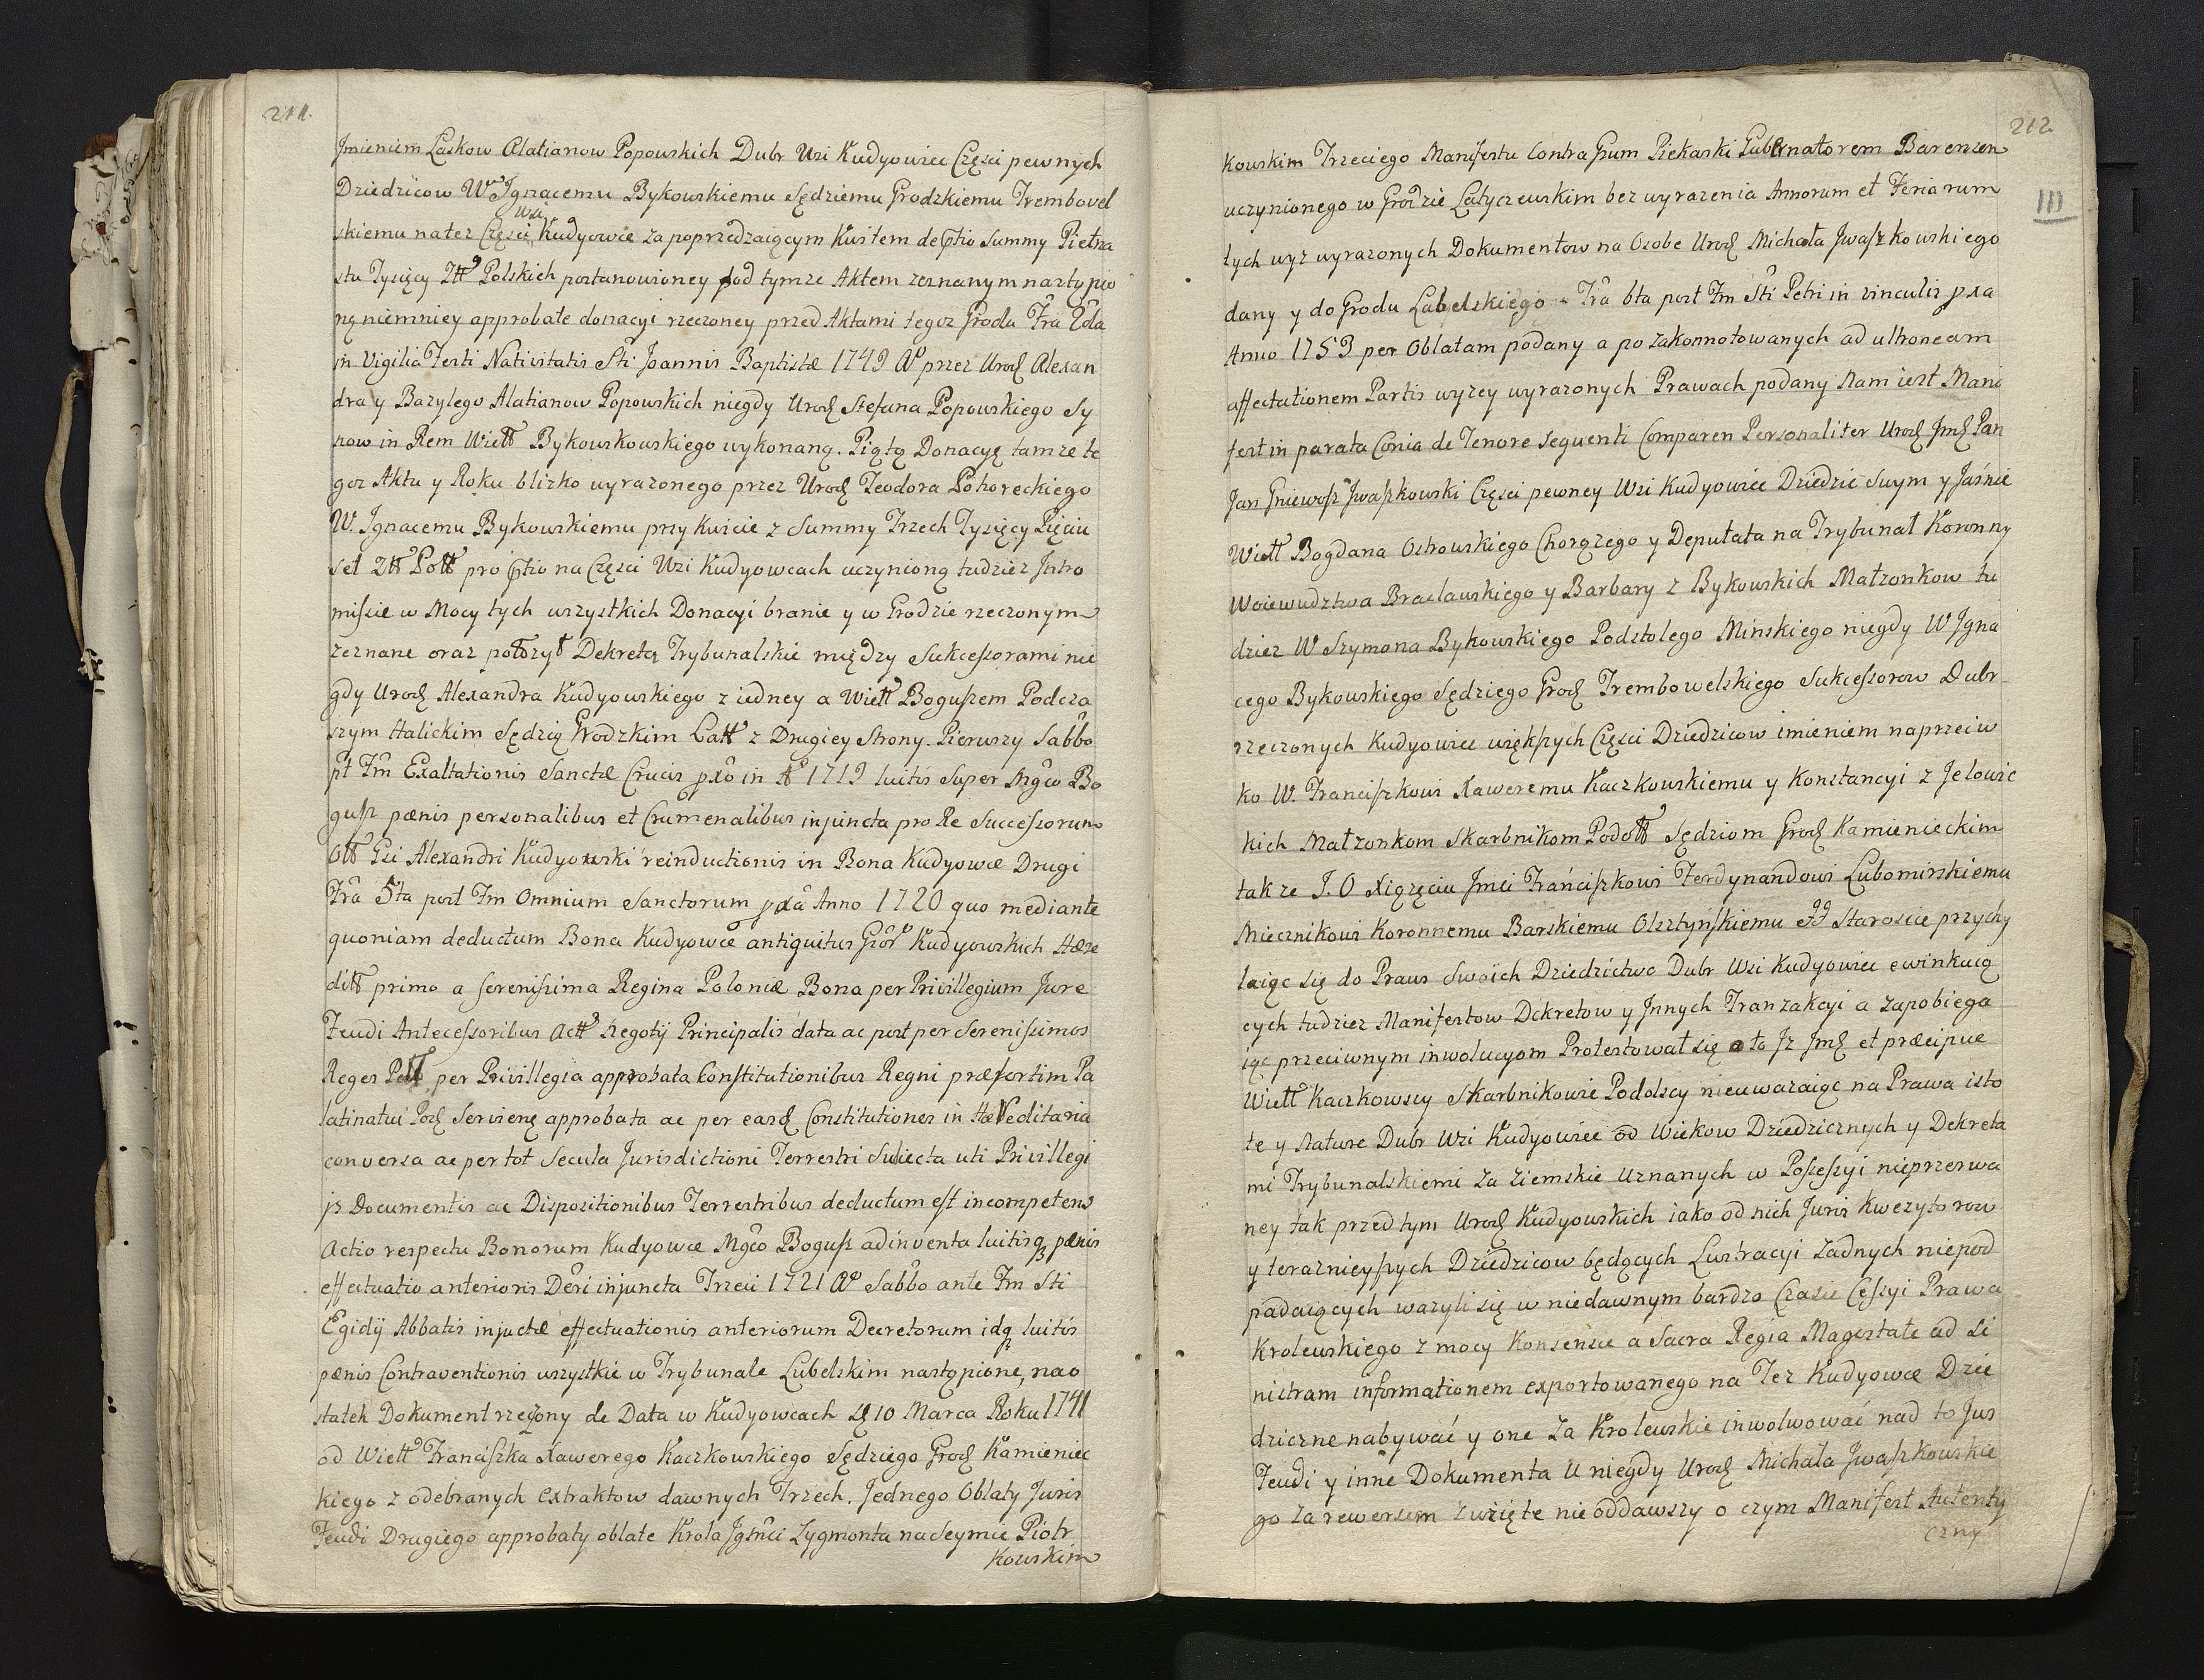 211.
Jmieniem Laskow Alatianow Popowskich Dubr Wsi Kudyowiec Częsci pewnych
Dziedzicow W° Jgnacemu Bykowskiemu Sędziemu Grodzkiemu Trembowel
wsi
skiemu na tez Częsci Kudyowce za poprzedzaiącym Kwitem de Sttio Summy Pietna
stu Tysięcy Złł Polskich postanowioney pod tymze Aktem zeznanym nastąpio
ną niemniey approbate donacyi rzeczoney przed Aktami tegoz Grodu Fra 2da
in Vigilia Festi Nativitatis Sti Joannis Baptistæ 1749 A° przez Urod Alexan
dra y Bazylego Alatianow Popowskich niegdy Urod Stefana Popowskiego Sy
now in Rem Wiell Bykowskowskiego wykonaną. Piątą Donacyę tamze te
goz Aktu y Roku blizko wyrazonego przez Urod Teodora Pohoreckiego
W. Jgnacemu Bykowskiemu przy Kwicie z Summy Trzech Tysięcy Pięciu
set Złł Poll pro Sttio na Częsci Wsi Kudyowcach uczynioną tudziez Jntro
missie w Mocy tych wszystkich Donacyi branie y w Grodzie rzeczonym
zeznane oraz połozył Dekreta Trybunalskie między Sukcessorami nie
gdy Urod Alexandra Kudyowskiego z iedney a Wiell Boguszem Podcza
szym Halickim Sędzią Grodzkim Latt z Drugiey Strony. Pierwszy Sabbo
pt Fm Exaltationis Sanctæ Crucis pxo in A° 1719 luitis Super Mgco Bo
gusz pænis personalibus et Crumenalibus injuncta pro Re Successorum
Oll Gsi Alexandri Kudyowski reinductionis in Bona Kudyowce Drugi
Fra 5ta post Fm Omnium Sanctorum pxa Anno 1720 quo mediante
quoniam deductum Bona Kudyowce antiquitus Gror Kudyowskich Hære
ditt primo a serenissima Regina Poloniæ Bona per Privillegium Jure
Feudi Antecessoribus Actt Negotij Principalis data ac post per Serenissimos
Reges Poll per Privillegia approbata Constitutionibus Regni præsertim Pa
latinatui Pod Serviens approbata ac per easd Constitutiones in Hæreditaria
conversa ac per tot Secula Jurisdictioni Terrestri Subiecta uti Privillegi
js Documentis ac Dispositionibus Terrestribus deductum est incompetens
Actio respectu Bonorum Kudyowce Mgco Bogusz adinventa luitisq pænis
effectuatio anterioris Decri injuncta Trzeci 1721 A° Sabbo ante Fm Sti
Egidij Abbatis injuctæ effectuationis anteriorum Decretorum idq luitis
pænis Contraventionis wszystkie w Trybunale Lubelskim nastąpione, nao
statek Dokument rzeczony de Data w Kudyowcach D 10 Marca Roku 1741
od Wiell Franciszka Xawerego Kaczkowskiego Sędziego Grod Kamieniec
kiego z odebranych extraktow dawnych Trzech. Jednego Oblaty Juris
Feudi Drugiego approbaty oblate Krola Jgmci Zygmonta na Seymie Piotr
kowskim

212
III
kowskim Trzeciego Manifestu contra Gsum Piekarski Gubernatorem Barensem
uczynionego w Grodzie Latyczewskim bez wyrazenia Annorum et Feriarum
tych wyz wyrazonych Dokumentow na Osobe Urod Michała Jwaszkowskiego
dany y do Grodu Lubelskiego Fra 6ta post Fm Sti Petri in vinculis pxa
Anno 1753 per Oblatam podany a po zakonnotowanych ad ultroneam
affectationem Partis wyzey wyrazonych Prawach podany Nam iest Mani
fest in parata Copia de Tenore sequenti Comparen Personaliter Urod Jmć Pan
Jan Gniewosz Jwaszkowski Częsci pewney Wsi Kudyowiec Dziedzic swym y Jaśnie
Wiell Bogdana Ostrowskiego Chorązego y Deputata na Trybunał Koronny
Woiewudztwa Bracławskiego y Barbary z Bykowskich Małzonkow tu
dziez W Szymona Bykowskiego Podstolego Minskiego niegdy W Jgna
cego Bykowskiego Sędziego Grod Trembowelskiego Sukcessorow Dubr
rzeczonych Kudyowiec więkſzych Częsci Dziedzicow imieniem naprzeciw
ko W. Franciszkowi Xaweremu Kaczkowskiemu y Konstancyi z Jełowic
kich Małzonkom Skarbnikom Podoll Sędziom Grod Kamienieckim
takze J. O Xiązęciu Jmci Franciszkowi Ferdynandowi Lubomirskiemu
Miecznikowi Koronnemu Barskiemu Olsztyńskiemu etc Staroscie przychy
laiąc się do Praw Swoich Dziedzictwo Dubr Wsi Kudyowiec ewinkuią
cych tudziez Manifestow Dekretow y Jnnych Tranzakcyi a zapobiega
iąc przeciwnym inwolucyom Protestował się o to Jz Jmć et præcipue
Wiell Kaczkowscy Skarbnikowie Podolscy nieuwazaiąc na Prawa isto
te y nature Dubr Wsi Kudyowiec od Wiekow Dziedzicznych y Dekreta
mi Trybunalskiemi za ziemskie uznanych w Possessyi nieprzerwa
ney tak przed tym Urod Kudyowskich iako od nich Juris Kwezytorow
y teraznieyszych Dziedzicow będących Lustracyi zadnych niepod
padaiących wazyli się w niedawnym bardzo Czasie Cessyi Prawa
Krolewskiego z mocy Konsensu a Sacra Regia Magestate ad Si
nistram informationem exportowanego na Tez Kudyowce Dzie
dziczne nabywać y one za Krolewskie inwolwować nad to Jus
Feudi y inne Dokumenta u niegdy Urod Michała Jwaszkowskie
go za rewersem zwzięte nie oddawszy o czym Manifest Autenty
czny